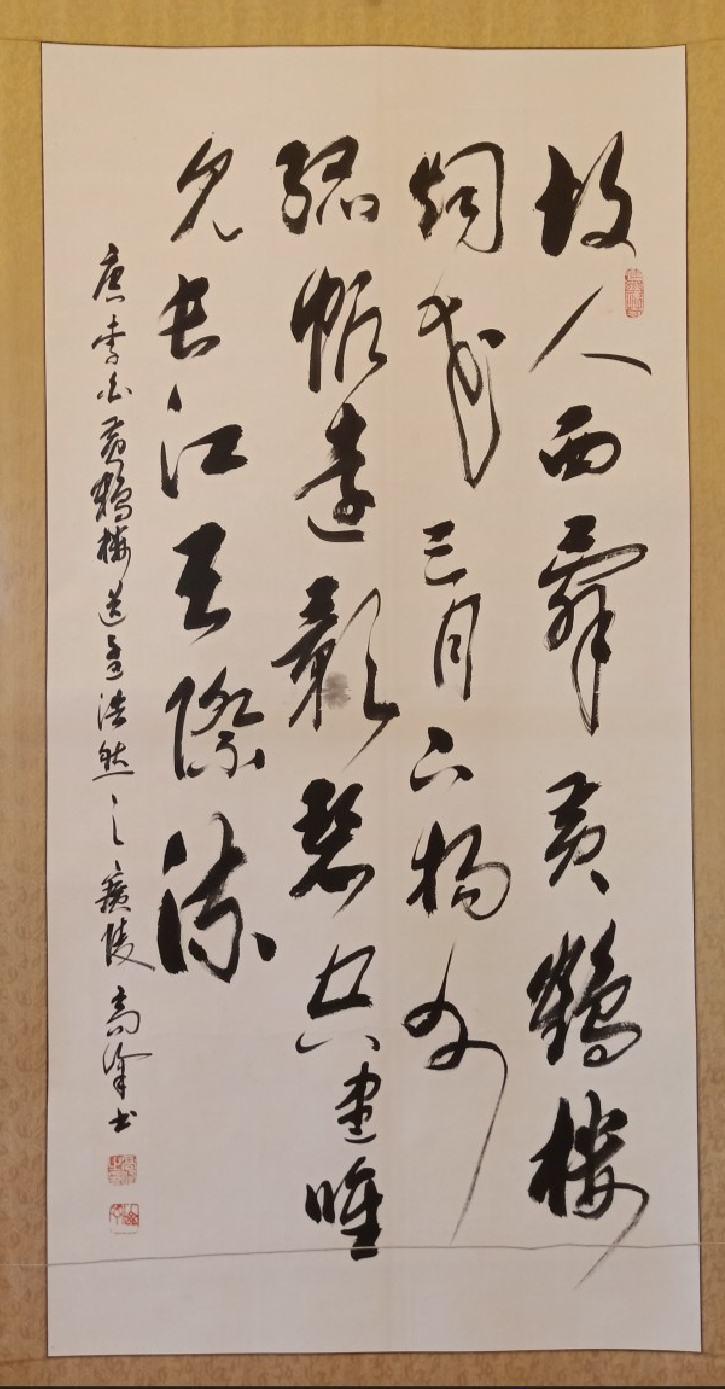 故人西辭黃鶴樓
烟花三月下揚州
孤帆遠影碧空盡唯
見長江天際流
唐李白黃鶴樓送孟浩然之廣陵 高 书